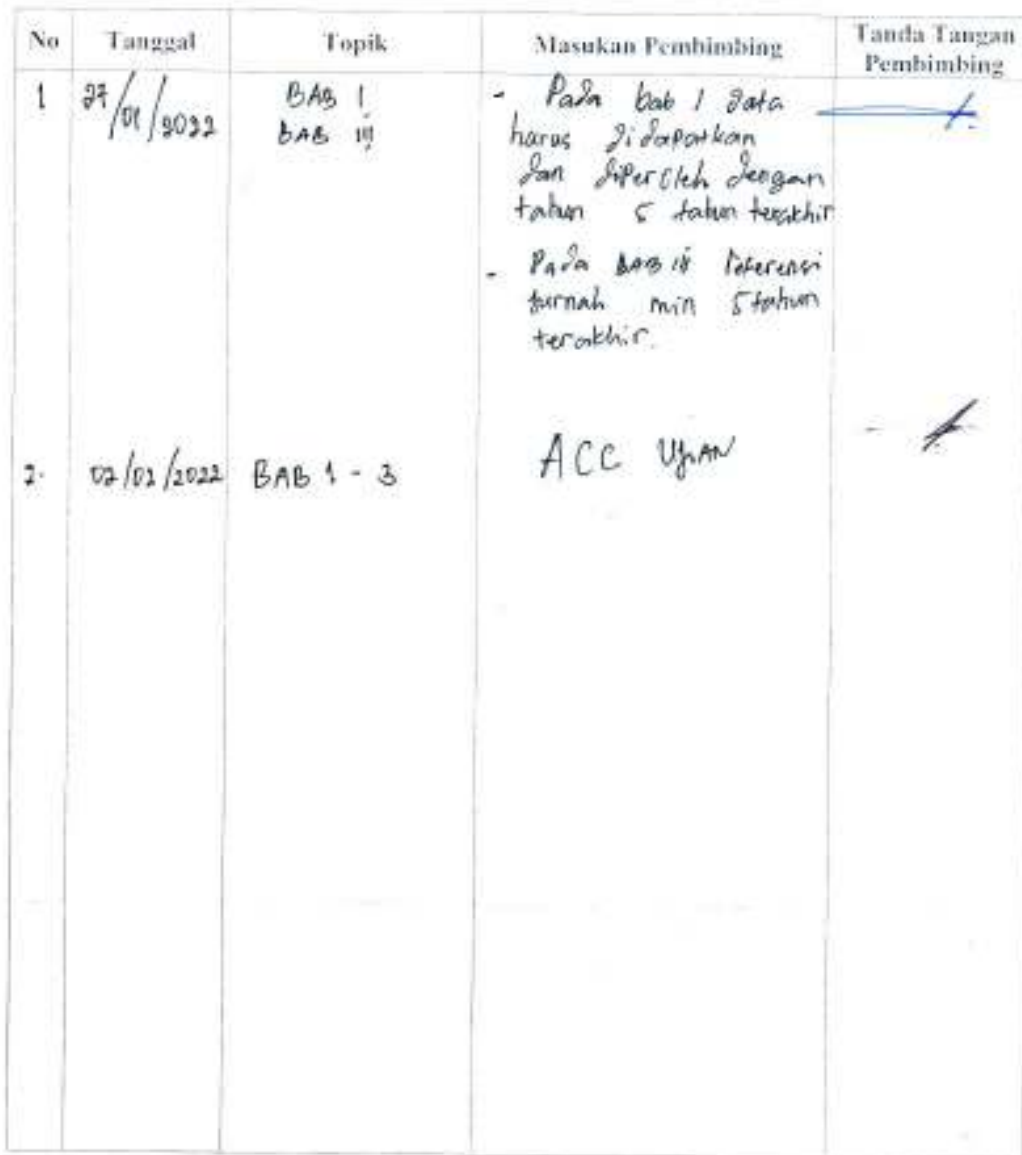 No Tanggal Topik Masukan Pembimbing Tanda Tangan Pembimbing
1 27/01/2022 BAB I - Pada bab 1 data
BAB III harus didapatkan
dan diperoleh dengan
tahun 5 tahun terakhir
- Pada BAB III referensi
jurnah min 5 tahun
terakhir.
2. 02/02/2022 BAB 1 - 3 ACC UJIAN